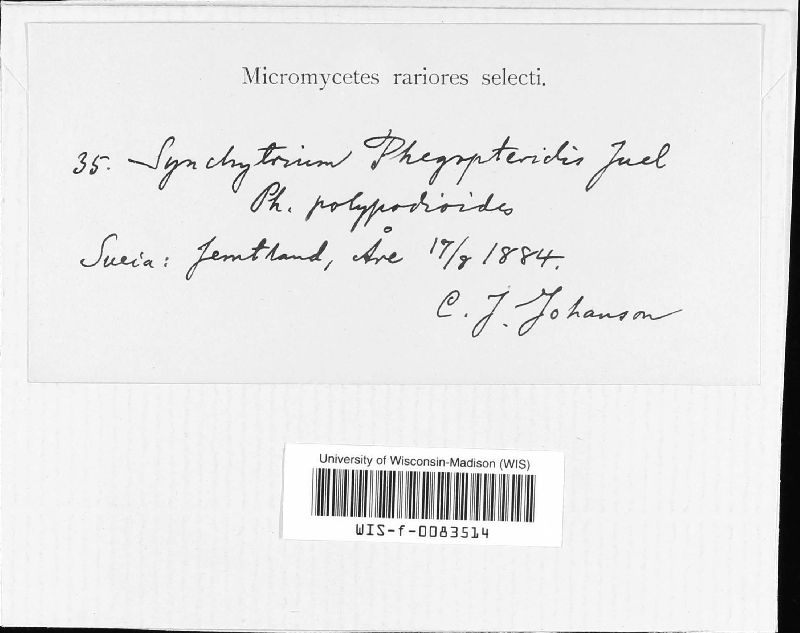 Micromycetes rariores selecti.
35. Synchytrium Phegopteridis Juel
Ph. polypodioides
Suecia: Jemtland, Åre 17/8 1884.
C. J. Johanson
University of Wisconsin-Madison (WIS)
WIS-f-0083514